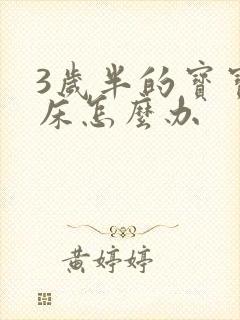 3歲半的寶寶
床怎麼办
黃婷婷